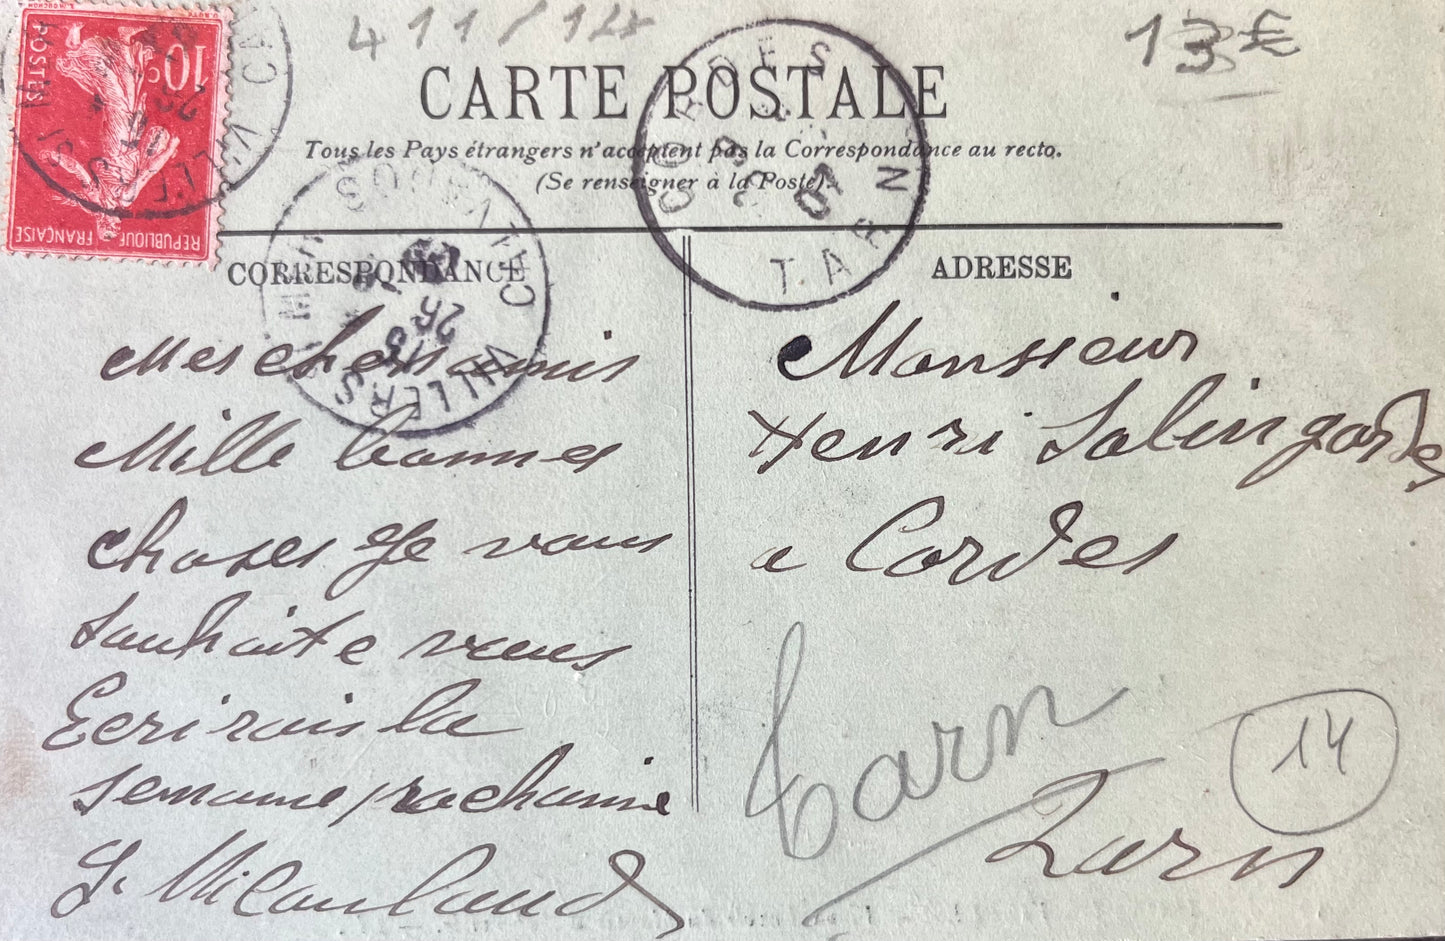 411/14
13 €
POSTES
10 c
REPUBLIQUE FRANÇAISE
CARTE POSTALE
Tous les Pays étrangers n'acceptent pas la Correspondance au recto.
(Se renseigner à la Poste).
CORDES
TARN
VILLERS
CORRESPONDANCE
ADRESSE
Mes chers amis
Mille bonnes
choses Je vous
souhaite vous
Ecrirais la
semaine prochaine
Monsieur
Henri
a Cordes
Tarn
Tarn
14